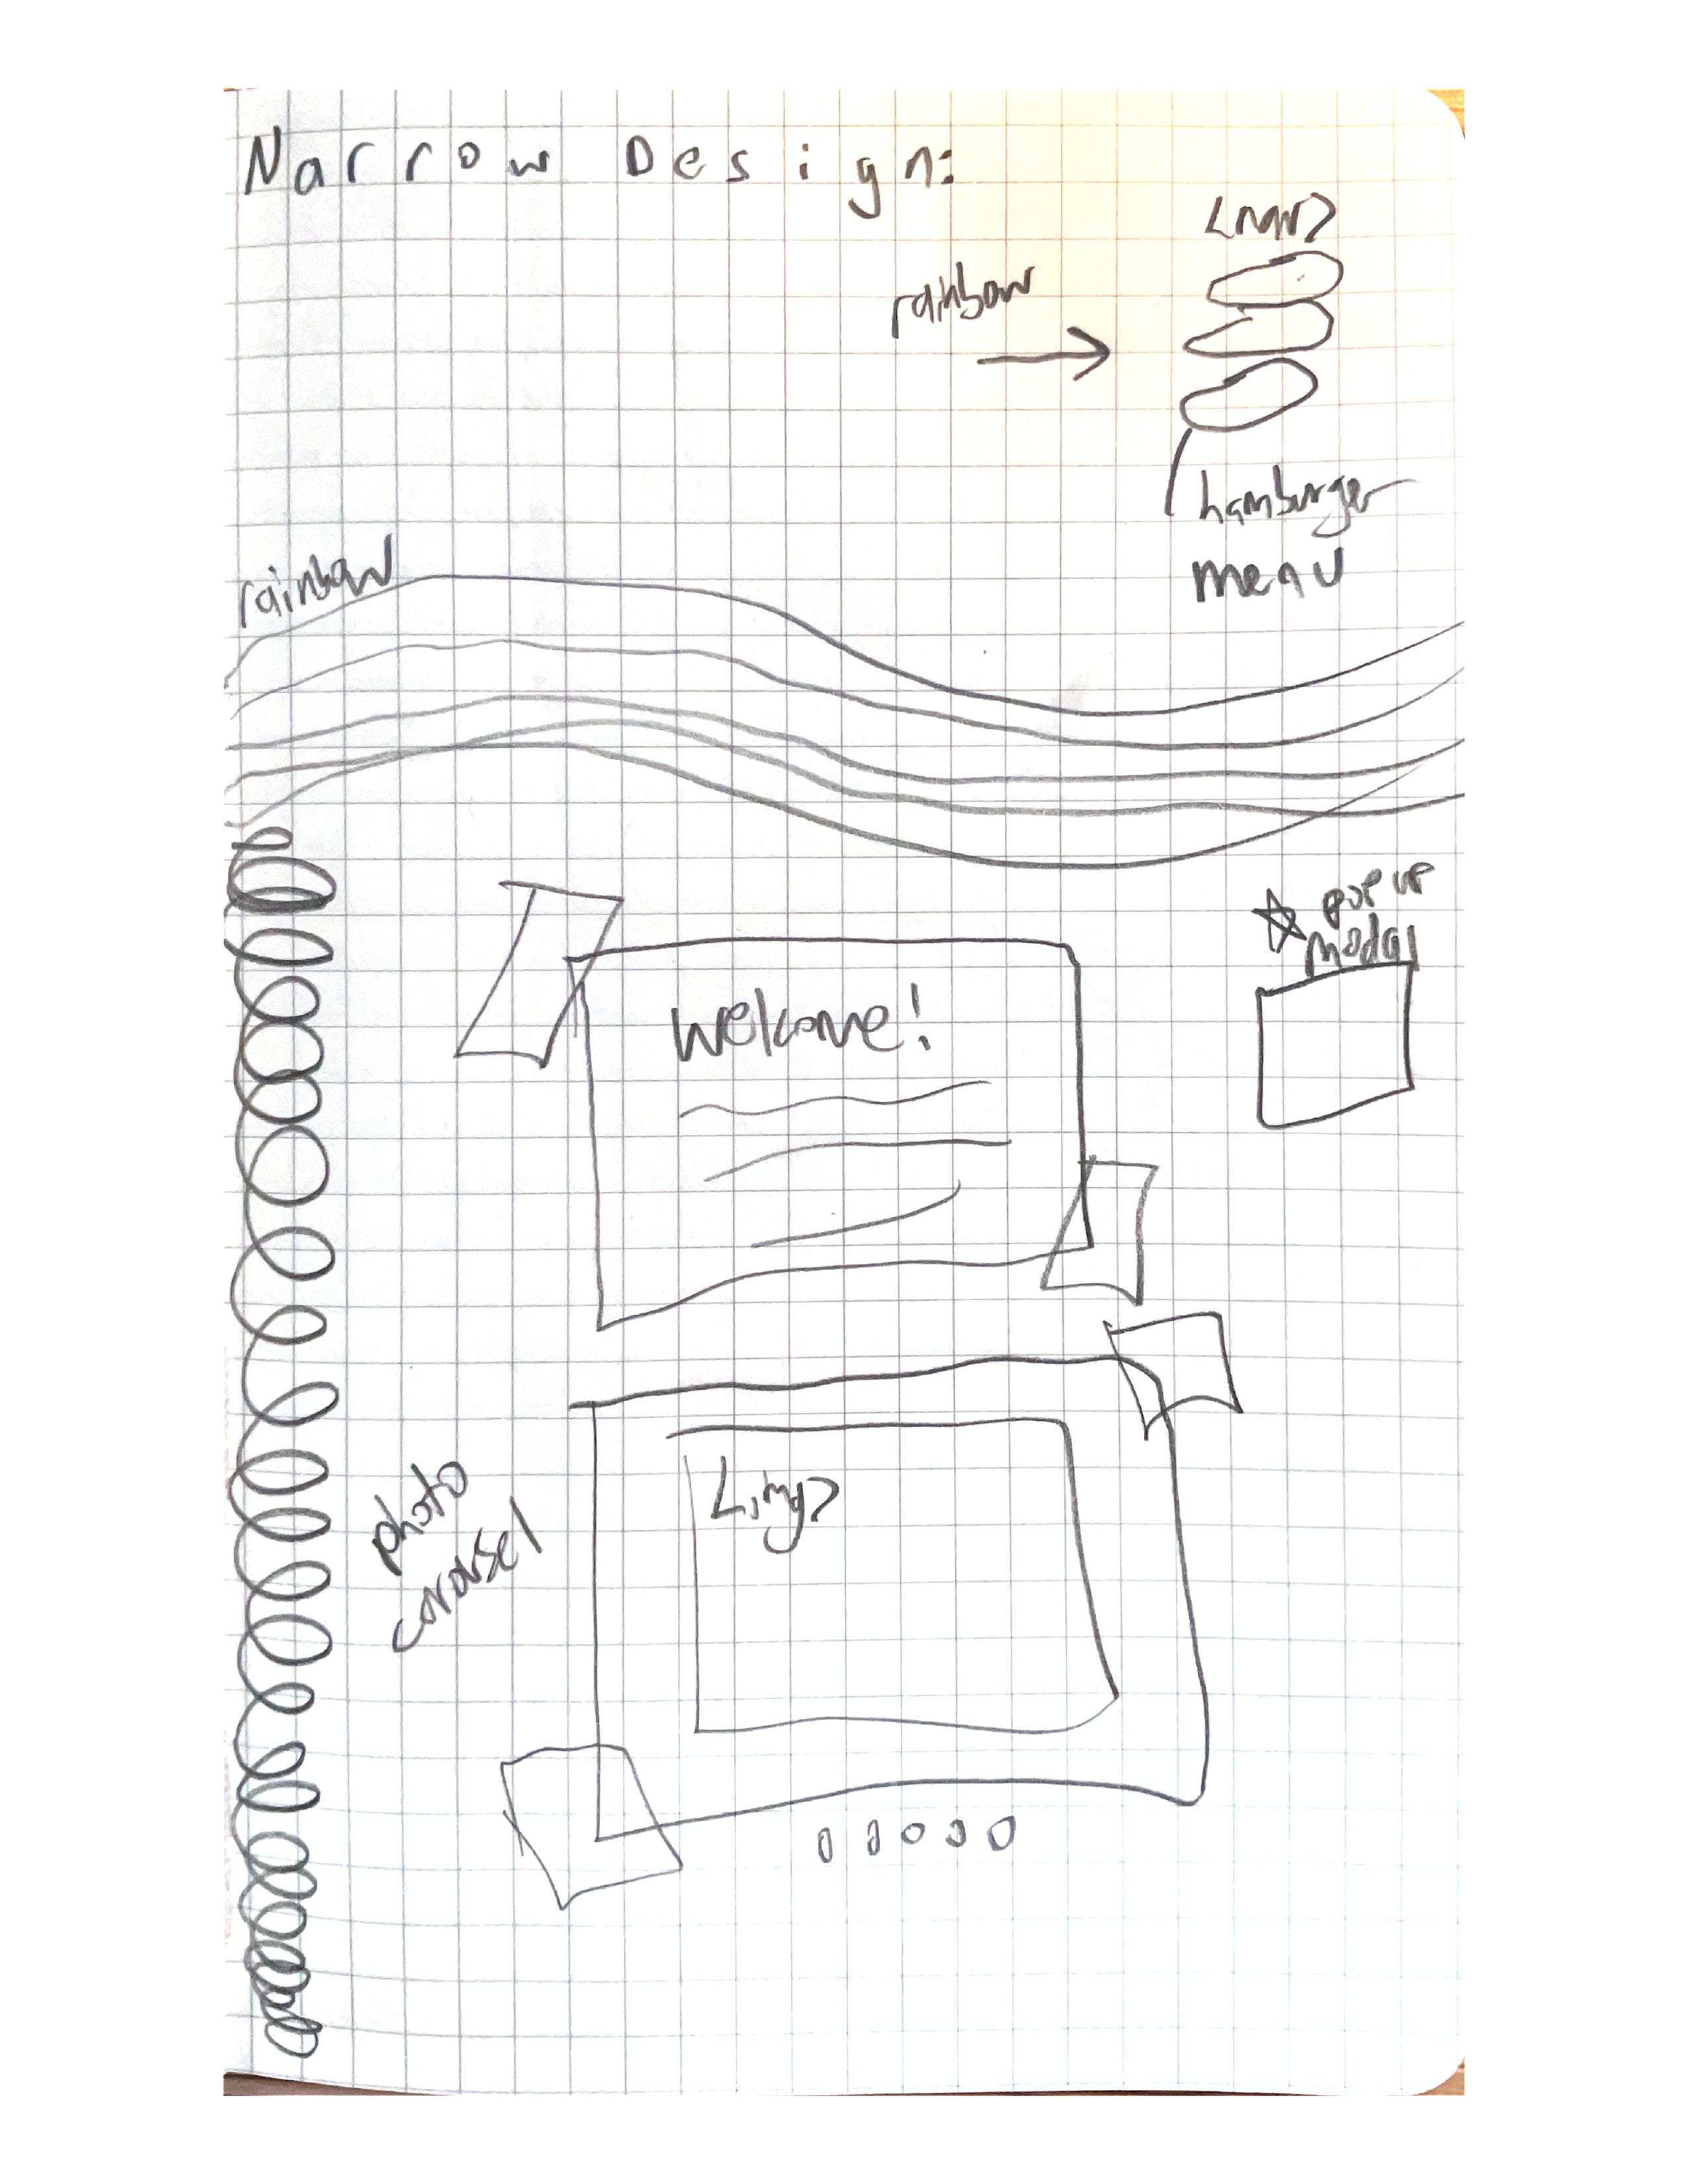 Narrow Design:
<nav>
rainbow
hamburger
menu
rainbow
pop up
modal
Welcome!
<img>
photo
carousel